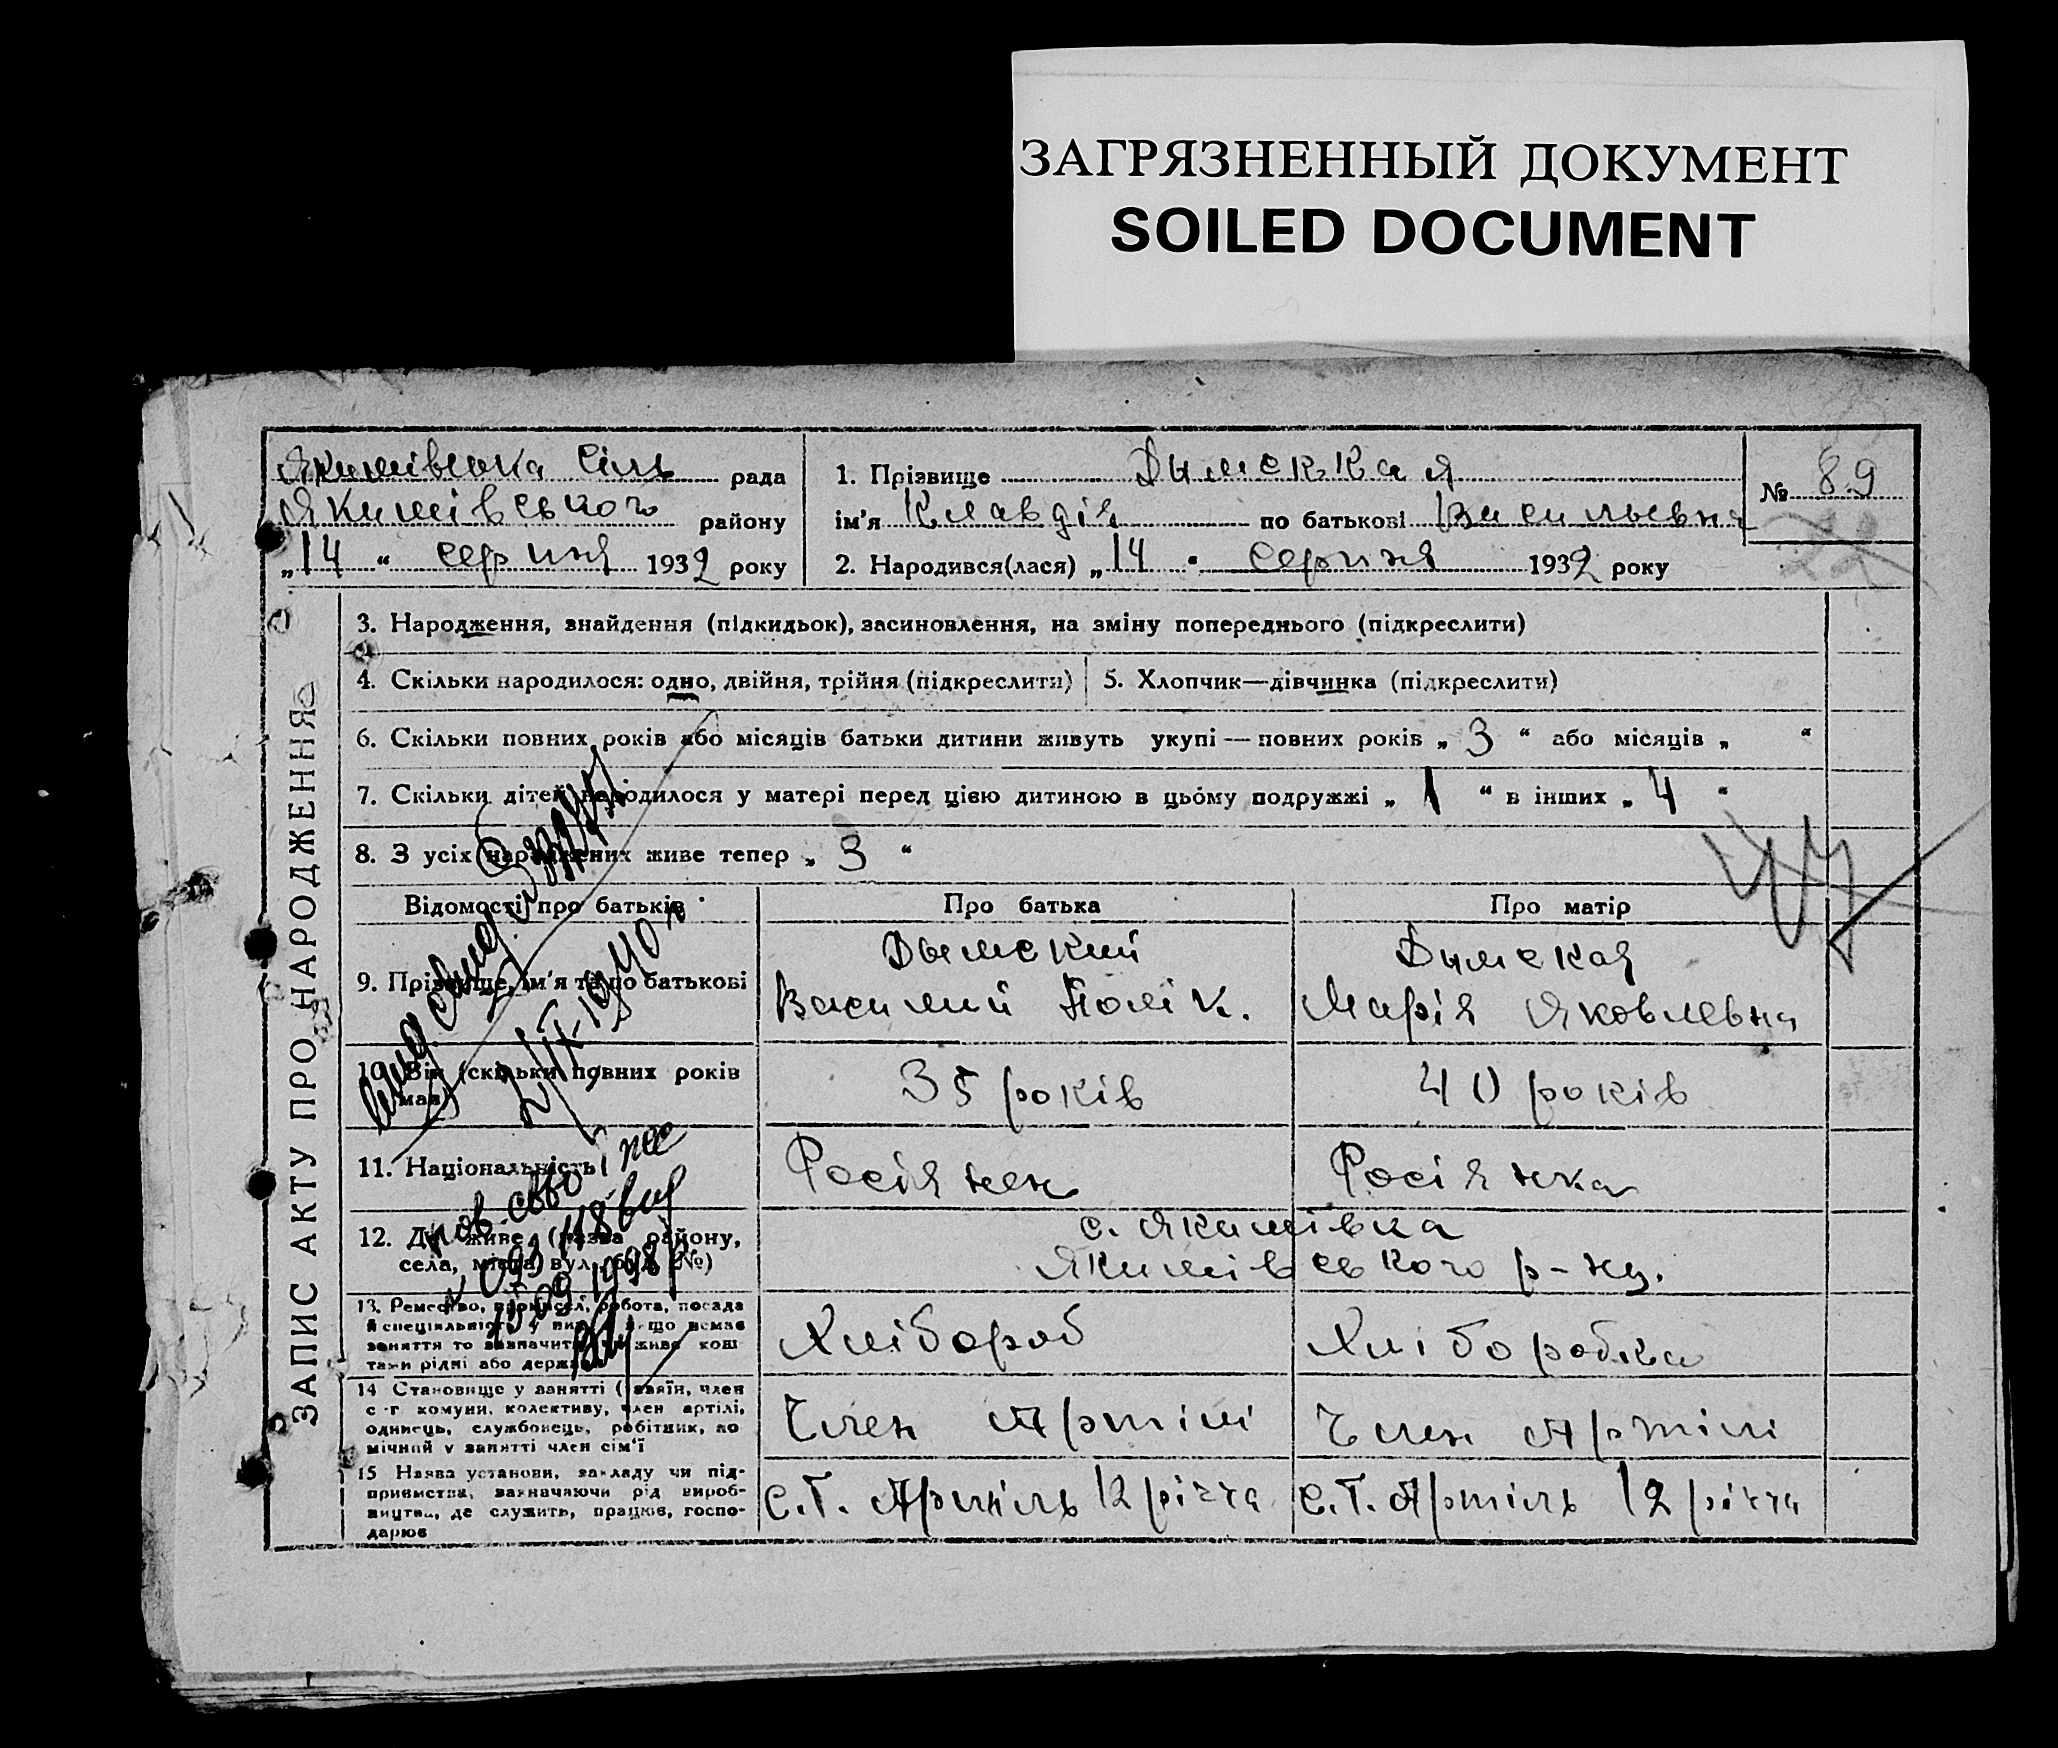 ЗАГРЯЗНЕННЫЙ ДОКУМЕНТ
SOILED DOCUMENT
Якимівська Сіль рада
Якимівського району
„14“ серпня 1932 року
1. Прізвище Дымсккая
ім'я Клавдія по батькові Васильевна
2. Народився(лася) „14“ серпня 1932 року
№ 89
ЗАПИС АКТУ ПРО НАРОДЖЕННЯ
3. Народження, знайдення (підкидьок), засиновлення, на зміну попереднього (підкреслити)
4. Скільки народилося: одно, двійня, трійня (підкреслити)
5. Хлопчик—дівчинка (підкреслити)
6. Скільки повних років або місяців батьки дитини живуть укупі — повних років „ 3 “ або місяців „ “
7. Скільки дітей народилося у матері перед цією дитиною в цьому подружжі „ 1 “ в інших „ 4 “
8. З усіх народжених живе тепер „ 3 “
Відомості про батьків
Про батька
Про матір
9. Прізвище, ім'я та по батькові
Дымский
Василий
Дымская
Марія Яковлевна
10. Вік (скільки повних років має)
35 років
40 років
11. Національність
Росіянен
Росіянка
12. Де живе (назва району,
села, міста, вул., буд. №)
с. Якимівка
Якимівського р-ну.
13. Ремество, промисел, робота, посада
й спеціяльність у них, а що немає
заняття то зазначити живе кош
тами рідні або держави
Хлібороб
Хліборобка
14 Становище у занятті (хазяїн, член
с-г комуни, колективу, член артілі,
одинець, службовець, робітник, по
мічний у занятті член сім'ї
Член Артілі
Член Артілі
15 Назва установи, закладу чи під-
приємства, зазначаючи рід вироб-
ництва, де служить, працює, госпо-
дарює
С.Г. Артіль 12 річчя
С.Г. Артіль 12 річчя
2/IX-1940 г